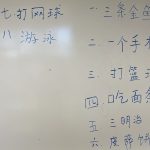 七 打网球
八 游泳
一. 三条金鱼
二. 一个手
三. 打篮
四 吃面条
五 三明治
六